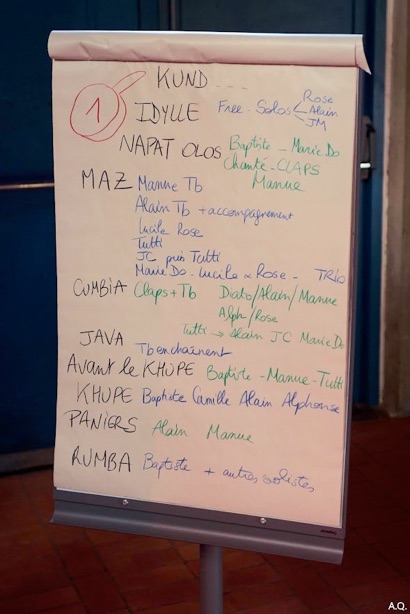 KUND ...
1 IDYLLE Free - Solos Rose
Alain
JM
NAPAT OLOS Baptiste - Marie Do
Chanté - CLAPS
Manue
MAZ Manue Tb
Alain Tb + accompagnement
Lucile Rose
Tutti
JC puis Tutti
Marie Do - Lucile & Rose - TRIO
CUMBIA Claps + Tb Dato/Alain/Manue
Alph/Rose
Tutti → Alain JC Marie Do
JAVA
Tb enchaînent
Avant le KHUPE Baptiste - Manue - Tutti
KHUPE Baptiste Camille Alain Alphonse
PANIERS Alain Manue
RUMBA Baptiste + autres solistes
A.Q.